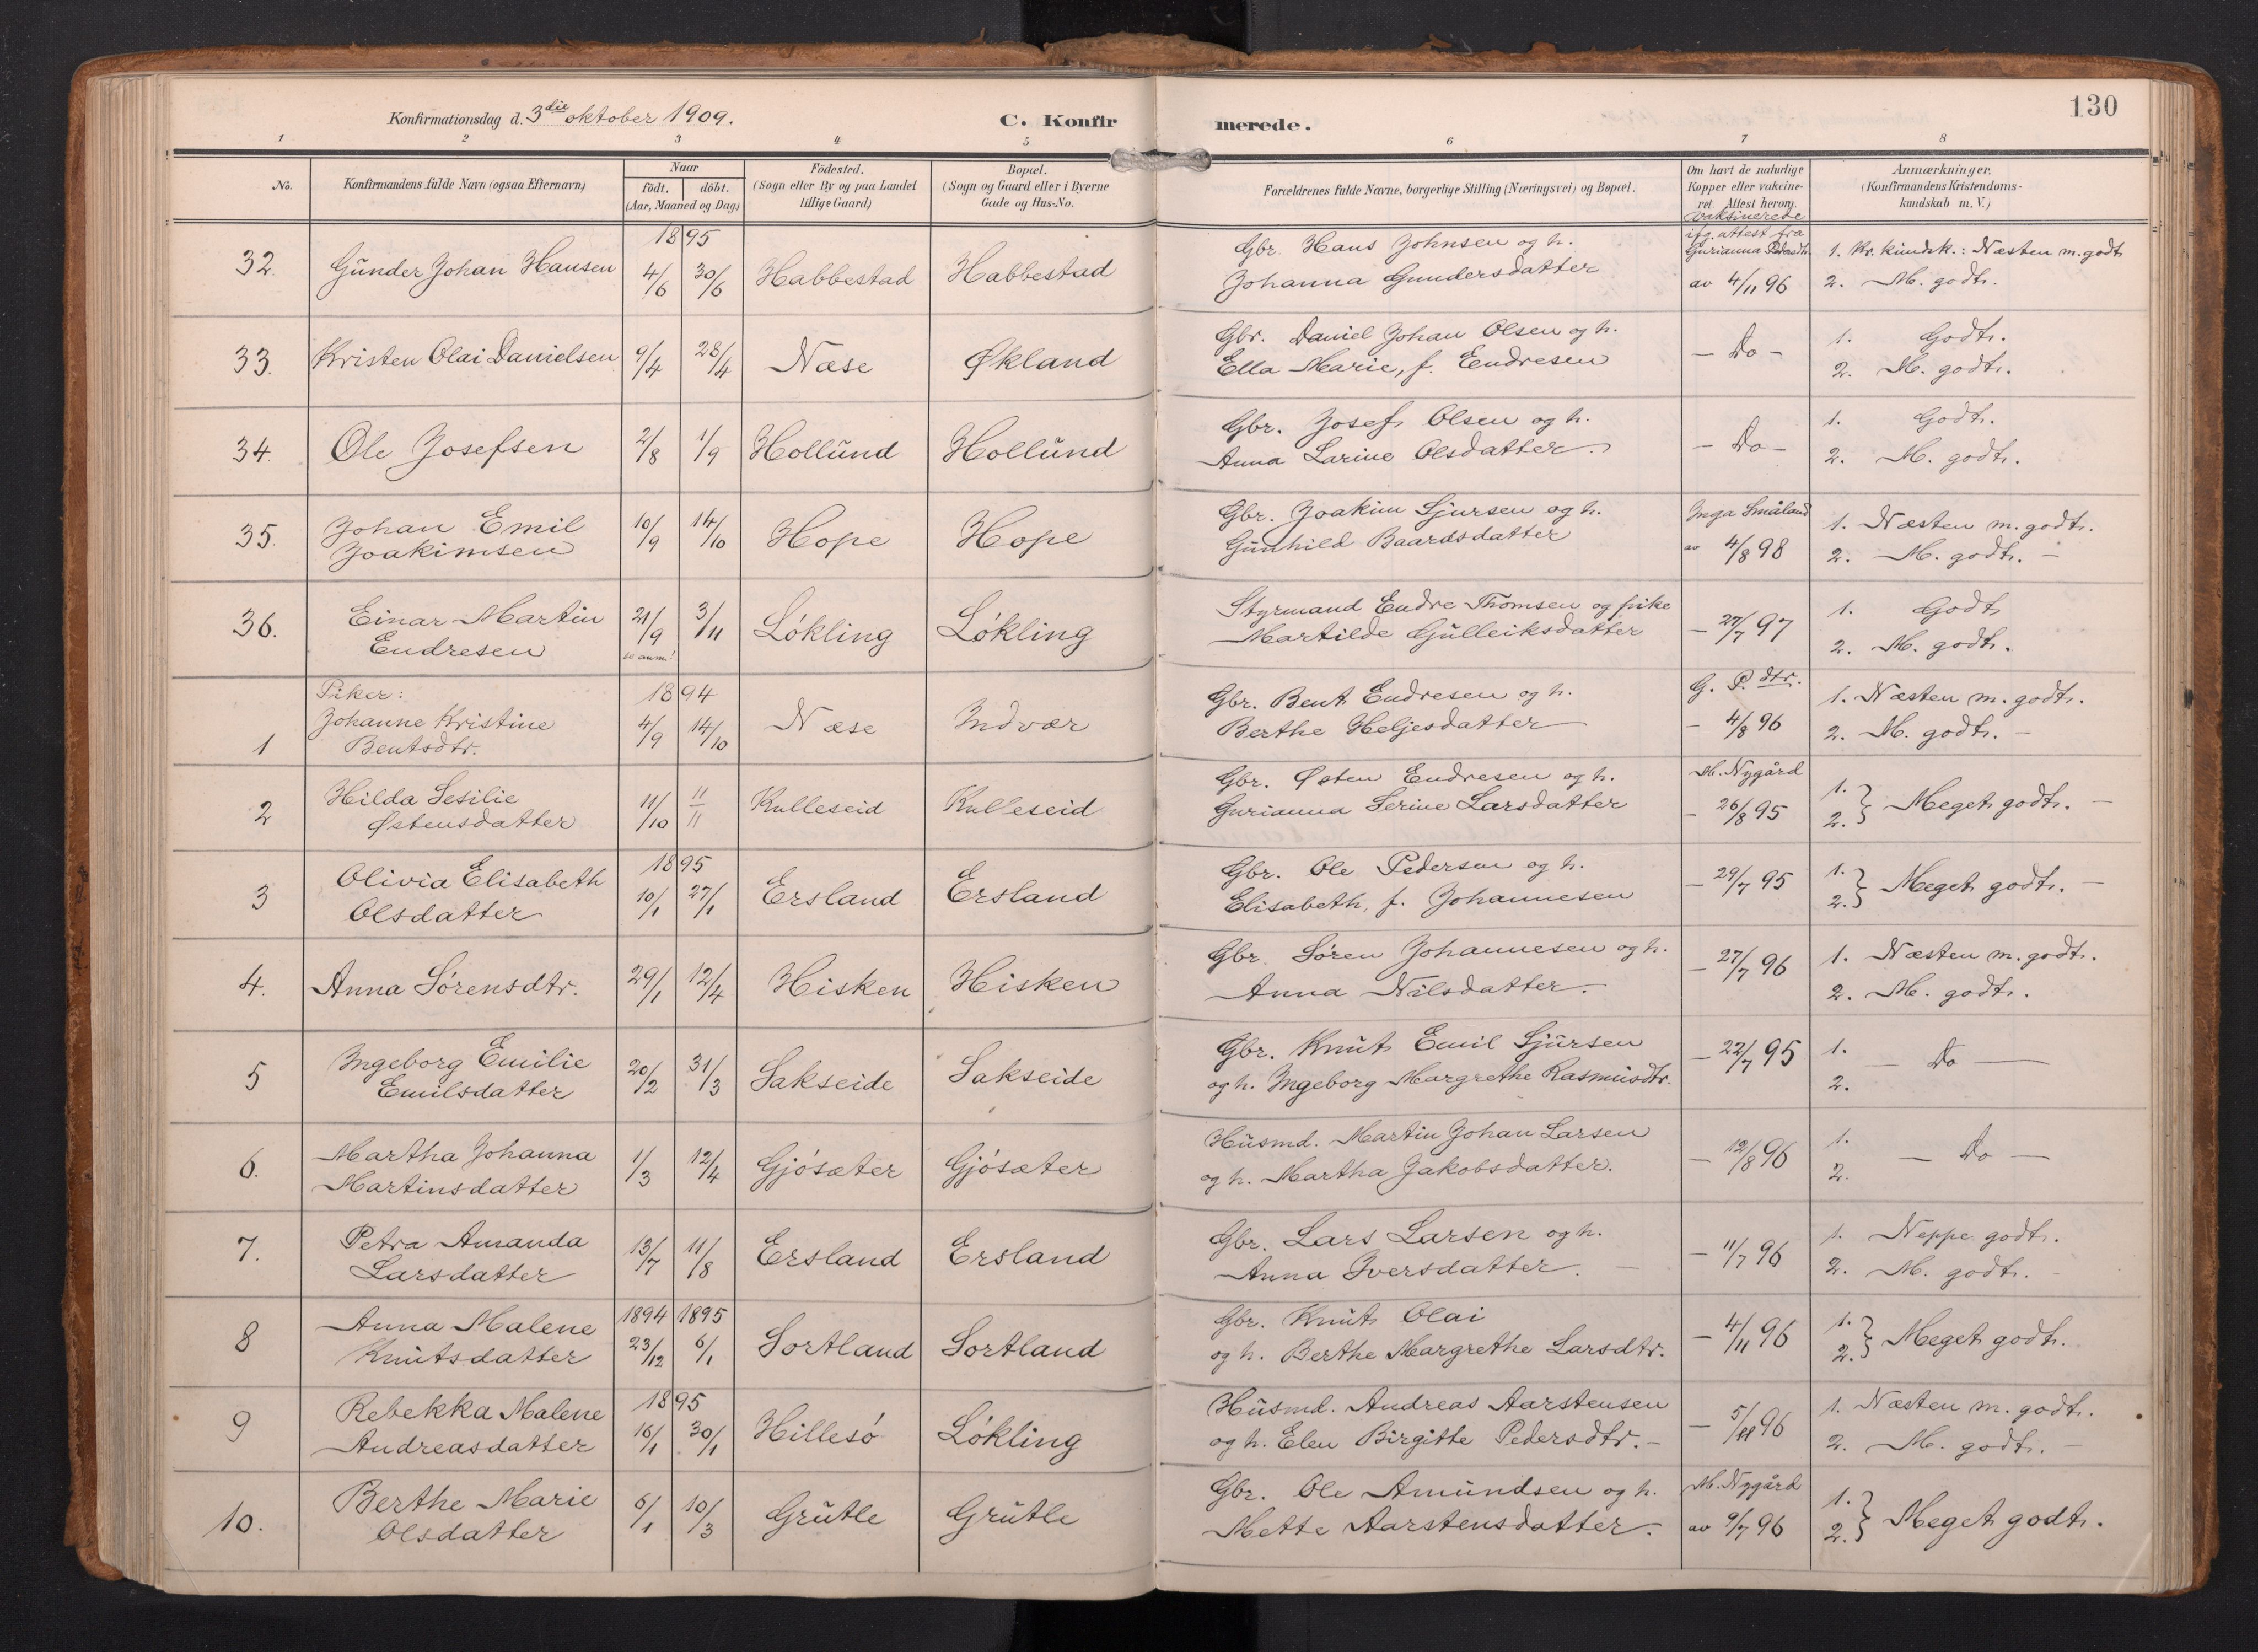 130
Konfirmationsdag d. 3die oktober 1909.
C. Konfirmerede.
1 2 3 4 5 6 7 8
No.
Konfirmandens fulde Navn (ogsaa Efternavn)
Naar
født. døbt.
(Aar, Maaned og Dag)
Fødested.
(Sogn eller By og paa Landet
tillige Gaard)
Bopæl.
(Sogn og Gaard eller i Byerne
Gade og Hus-No.
Forældrenes fulde Navne, borgerlige Stilling (Næringsvei) og Bopæl.
Om havt de naturlige
Kopper eller vakcine-
ret. Attest herom.
Anmærkninger.
(Konfirmandens Kristendoms-
kundskab m. V.)
vaksinerede
ifg. attest fra
1895
32. Gunder Johan Hansen 4/6 30/6 Habbestad Habbestad
Gbr. Hans Johnsen og h.
Johanna Gundersdatter
Gurianna Pedersdtr.
av 4/11 96
1. Kr. kundsk.: Næsten m. godt
2. M. godt.
33. Kristen Olai Danielsen 9/4 28/4 Næse Økland
Gbr. Daniel Johan Olsen og h.
Ella Marie, f. Endresen
- Do -
1. Godt.
2. M. godt.
34. Ole Josefsen 2/8 1/9 Hollund Hollund
Gbr. Josef Olsen og h.
Anna Larine Olsdatter.
- Do -
1. Godt.
2. M. godt.
35. Johan Emil
Joakimsen
10/9 14/10 Hope Hope
Gbr. Joakim Sjursen og h.
Gunhild Baardsdatter
Inga Småland
av 4/8 98
1. Næsten m. godt.
2. M. godt. -
36. Einar Martin
Endresen
21/9 3/11 Løkling Løkling
se anm!
Styrmand Endre Thomsen og pike
Martilde Gulleiksdatter
- 27/7 97
1. Godt
2. M. godt.
Piker:
1894
1 Johanne Kristine
Bentsdtr.
4/9 14/10 Næse Indvær
Gbr. Bent Endresen og h.
Berthe Heljesdatter
G. P. dtr.
- 4/8 96
1. Næsten m. godt.
2. M. godt. -
2 Hilda Sesilie
Østensdatter
11/10 11/11 Kulleseid Kulleseid
Gbr. Østen Endresen og h.
Gurianna Serine Larsdatter
M. Nygård
- 26/8 95
1.
2. } Meget godt. -
1895
3 Olivia Elisabeth
Olsdatter
10/1 27/1 Ersland Ersland
Gbr. Ole Pedersen og h.
Elisabeth, f. Johannesen
- 29/7 95
1.
2. } Meget godt. -
4. Anna Sørensdtr. 29/1 12/4 Hisken Hisken
Gbr. Søren Johannesen og h.
Anna Nilsdatter.
- 27/7 96
1. Næsten m. godt.
2. M. godt.
5 Ingeborg Emilie
Emilsdatter
20/2 31/3 Sakseide Sakseide
Gbr. Knut Emil Sjursen
og h. Ingeborg Margrethe Rasmusdtr.
- 22/7 95
1.
2. - Do -
6. Martha Johanna
Martinsdatter
1/3 12/4 Gjøsæter Gjøsæter
Husmd. Martin Johan Larsen
og h. Martha Jakobsdatter.
- 12/8 96
1.
2. - Do -
7. Petra Amanda
Larsdatter
13/7 11/8 Ersland Ersland
Gbr. Lars Larsen og h.
Anna Iversdatter. -
- 11/7 96
1. Neppe godt.
2. M. godt. -
1894 1895
8 Anna Malene
Knutsdatter
23/12 6/1 Sortland Sortland
Gbr. Knut Olai
og h. Berthe Margrethe Larsdtr.
- 4/11 96
1.
2. } Meget godt.
1895
9 Rebekka Malene
Andreasdatter
16/1 30/1 Hillesø Løkling
Husmd. Andreas Aarstensen
og h. Elen Birgitte Pedersdtr. -
- 5/11 96
1. Næsten m. godt.
2. M. godt. -
10. Berthe Marie
Olsdatter
6/1 10/3 Grutle Grutle
Gbr. Ole Amundsen og h.
Mette Aarstensdatter.
M. Nygård
av 9/7 96
1.
2. } Meget godt.